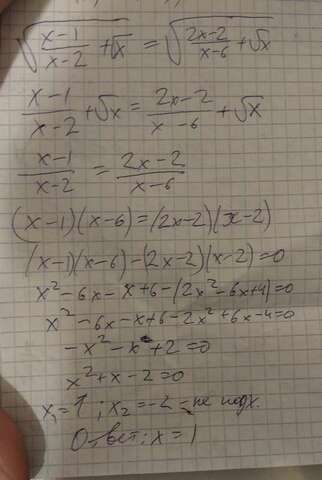 √((x-1)/(x-2) + √x) = √((2x-2)/(x-6) + √x)
(x-1)/(x-2) + √x = (2x-2)/(x-6) + √x
(x-1)/(x-2) = (2x-2)/(x-6)
(x-1)(x-6)=(2x-2)(x-2)
(x-1)(x-6)-(2x-2)(x-2)=0
x²-6x-x+6-(2x²-6x+4)=0
x²-6x-x+6-2x²+6x-4=0
-x²-x+2=0
x²+x-2=0
x₁=1; x₂=-2 - не подх.
Ответ: x=1